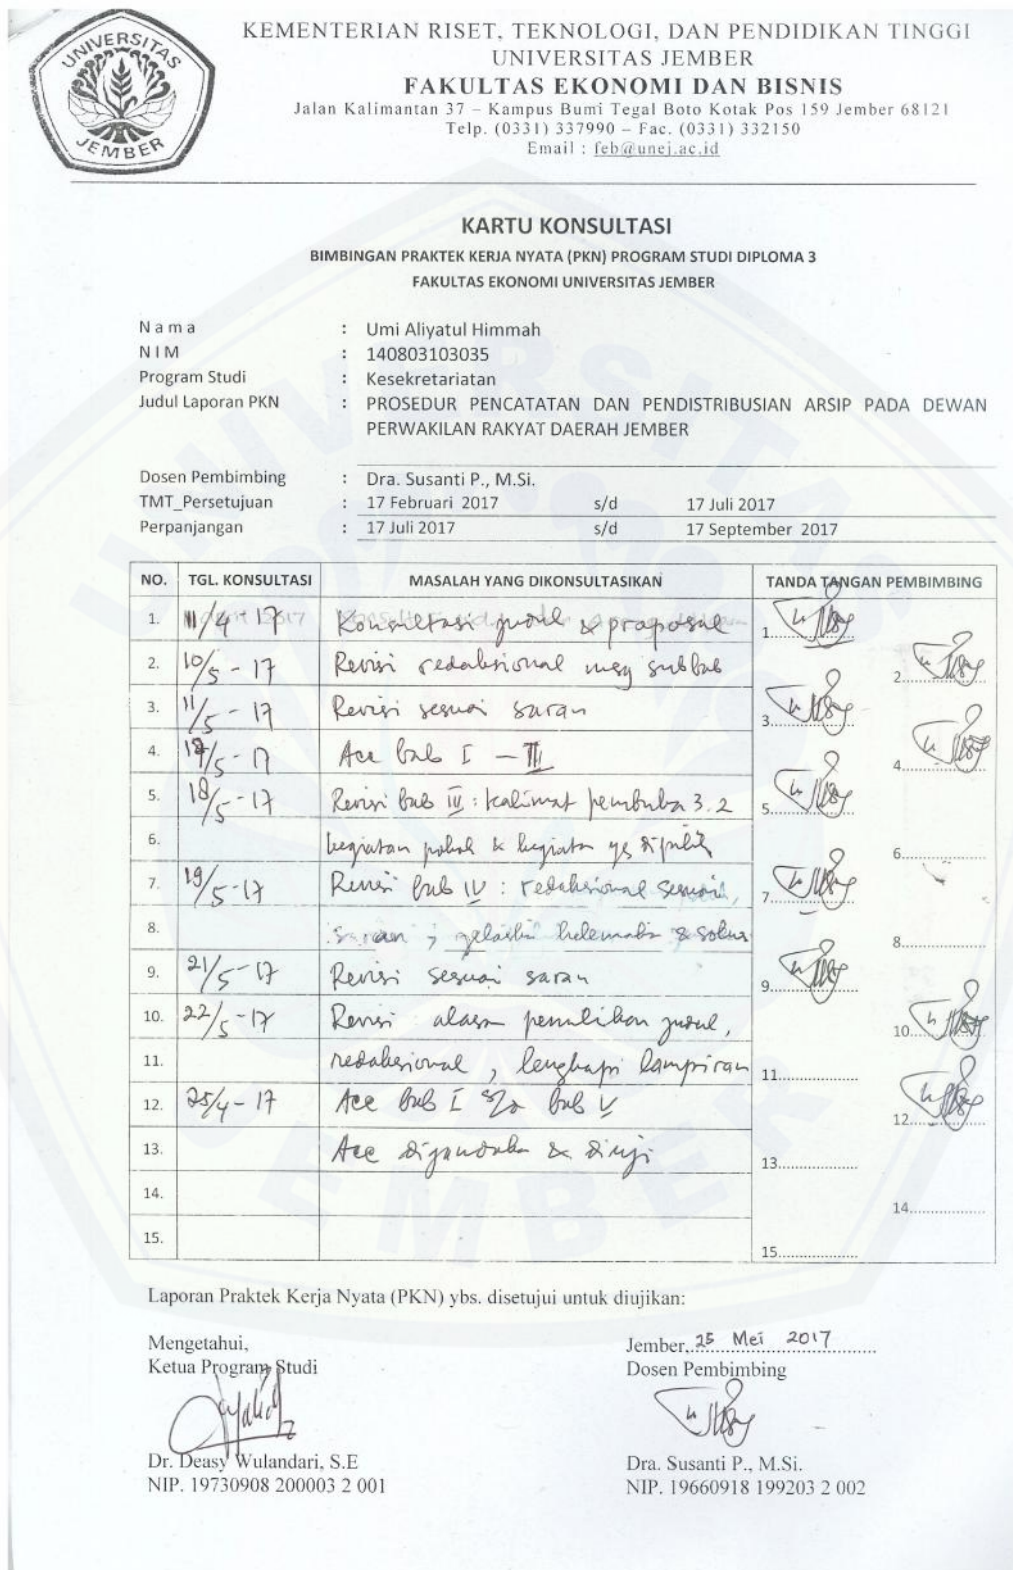 UNIVERSITAS
JEMBER
KEMENTERIAN RISET, TEKNOLOGI, DAN PENDIDIKAN TINGGI
UNIVERSITAS JEMBER
FAKULTAS EKONOMI DAN BISNIS
Jalan Kalimantan 37 – Kampus Bumi Tegal Boto Kotak Pos 159 Jember 68121
Telp. (0331) 337990 – Fac. (0331) 332150
Email : feb@unej.ac.id
KARTU KONSULTASI
BIMBINGAN PRAKTEK KERJA NYATA (PKN) PROGRAM STUDI DIPLOMA 3
FAKULTAS EKONOMI UNIVERSITAS JEMBER
N a m a : Umi Aliyatul Himmah
N I M : 140803103035
Program Studi : Kesekretariatan
Judul Laporan PKN : PROSEDUR PENCATATAN DAN PENDISTRIBUSIAN ARSIP PADA DEWAN
PERWAKILAN RAKYAT DAERAH JEMBER
Dosen Pembimbing : Dra. Susanti P., M.Si.
TMT_Persetujuan : 17 Februari 2017 s/d 17 Juli 2017
Perpanjangan : 17 Juli 2017 s/d 17 September 2017
NO. TGL. KONSULTASI MASALAH YANG DIKONSULTASIKAN TANDA TANGAN PEMBIMBING
1. 11/4 - 17 Konsultasi judul & proposal 1.
2. 10/5 - 17 Revisi redaksional subbab 2.
3. 11/5 - 17 Revisi sesuai saran 3.
4. /5 - 17 Acc bab I – III 4.
5. 18/5 - 17 Revisi bab III : kalimat pembuka 3.2 5.
6. kegiatan pokok & kegiatan yg dipilih 6.
7. 19/5 - 17 Revisi bab IV : redaksional sesuai 7.
8. saran, & solusi 8.
9. 21/5 - 17 Revisi sesuai saran 9.
10. 22/5 - 17 Revisi alasan pemilihan judul, 10.
11. redaksional, lengkapi lampiran 11.
12. 25/4 - 17 Acc bab I s/d bab V 12.
13. Acc digandakan & diuji 13.
14. 14.
15. 15.
Laporan Praktek Kerja Nyata (PKN) ybs. disetujui untuk diujikan:
Mengetahui,
Ketua Program Studi
Dr. Deasy Wulandari, S.E
NIP. 19730908 200003 2 001
Jember, 25 Mei 2017
Dosen Pembimbing
Dra. Susanti P., M.Si.
NIP. 19660918 199203 2 002